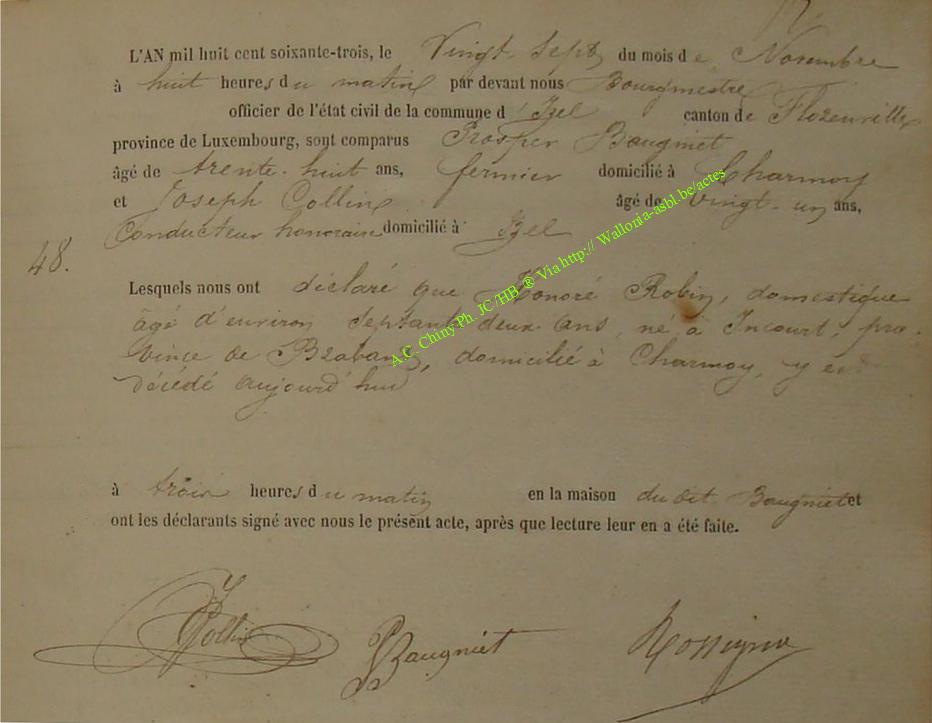 L'AN mil huit cent soixante-trois, le Vingt Sept du mois de Novembre
à huit heures du matin par devant nous Bourgmestre
officier de l'état civil de la commune d'Izel canton de Florenville
province de Luxembourg, sont comparus Prosper Baugniet
âgé de trente-huit ans, fermier domicilié à Charmoy
et Joseph Collin âgé de vingt-un ans,
Conducteur honoraire domicilié à Izel
48.
Lesquels nous ont déclaré que Honoré Robin, domestique
âgé d'environ septante deux ans, né à Incourt, pro-
vince de Brabant, domicilié à Charmoy, y est
décédé aujourd'hui
à trois heures du matin en la maison du dit Baugniet et
ont les déclarants signé avec nous le présent acte, après que lecture leur en a été faite.
J Collin PBaugniet
A.C. Chiny Ph JC/HB ® Via http:// Wallonia-asbl.be/actes